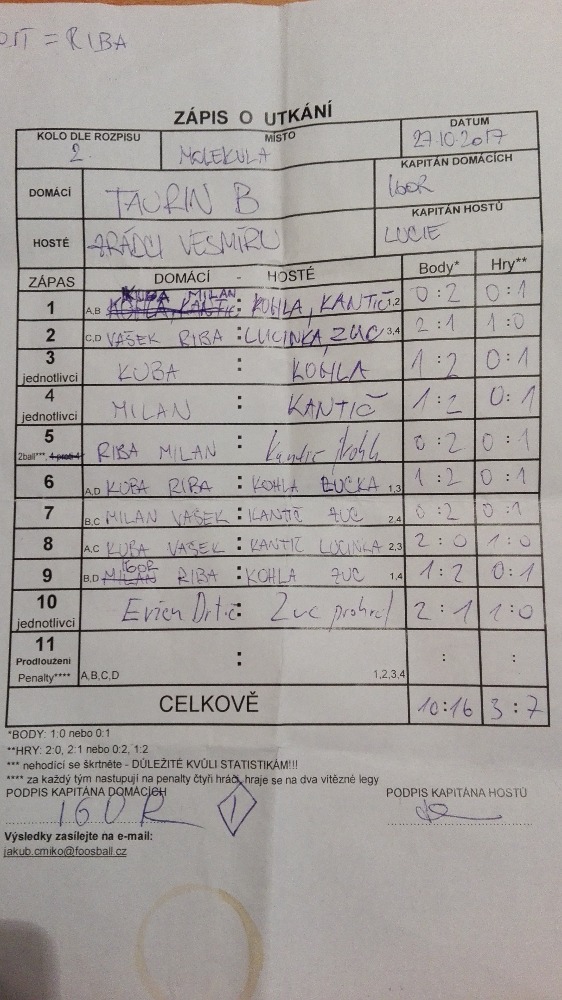 = RIBA
ZÁPIS O UTKÁNÍ
KOLO DLE ROZPISU MÍSTO DATUM
2. MOLEKULA 27.10.2017
DOMÁCÍ TAURIN B KAPITÁN DOMÁCÍCH IGOR
HOSTÉ ZRÁDCI VESMÍRU KAPITÁN HOSTŮ LUCIE
ZÁPAS DOMÁCÍ - HOSTÉ Body* Hry**
1 A,B KUBA MILAN : KOHLA, KANTIČ 1,2 0:2 0:1
2 C,D VAŠEK RIBA : LUCINKA, ZUC 3,4 2:1 1:0
3 jednotlivci KUBA : KOHLA 1:2 0:1
4 jednotlivci MILAN KANTIČ 1:2 0:1
5 2ball***, RIBA MILAN : Kantic 0:2 0:1
6 A,D KUBA RIBA : KOHLA 1,3 1:2 0:1
7 B,C MILAN VAŠEK : KANTIČ ZUC 2,4 0:2 0:1
8 A,C KUBA VAŠEK : KANTIČ LUCINKA 2,3 2:0 1:0
9 B,D IGOR RIBA : KOHLA ZUC 1,4 1:2 0:1
10 jednotlivci Evžen Drtič : Zuc prohrál 2:1 1:0
11 Prodloužení Penalty**** A,B,C,D : 1,2,3,4 : :
CELKOVĚ 10:16 3:7
*BODY: 1:0 nebo 0:1
**HRY: 2:0, 2:1 nebo 0:2, 1:2
*** nehodící se škrtněte - DŮLEŽITÉ KVŮLI STATISTIKÁM!!!
**** za každý tým nastupují na penalty čtyři hráči, hraje se na dva vítězné legy
PODPIS KAPITÁNA DOMÁCÍCH PODPIS KAPITÁNA HOSTŮ
IGOR 1
Výsledky zasílejte na e-mail:
jakub.cmiko@foosball.cz